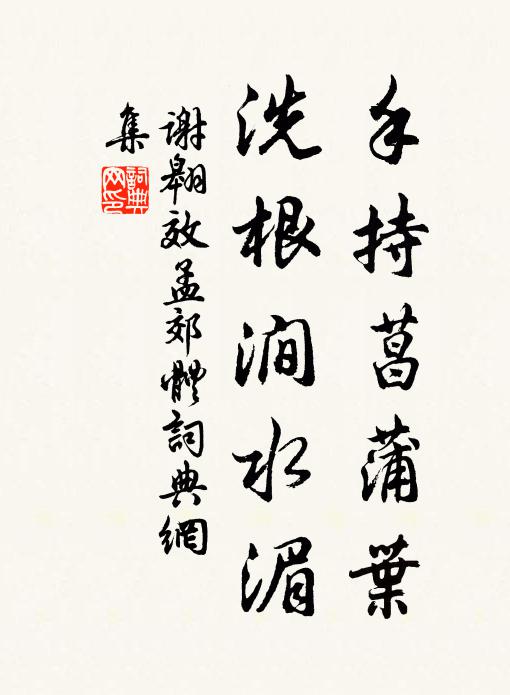 手持菖蒲葉
洗根澗水湄
謝翱效孟郊體詞典網
集
詞典
网印